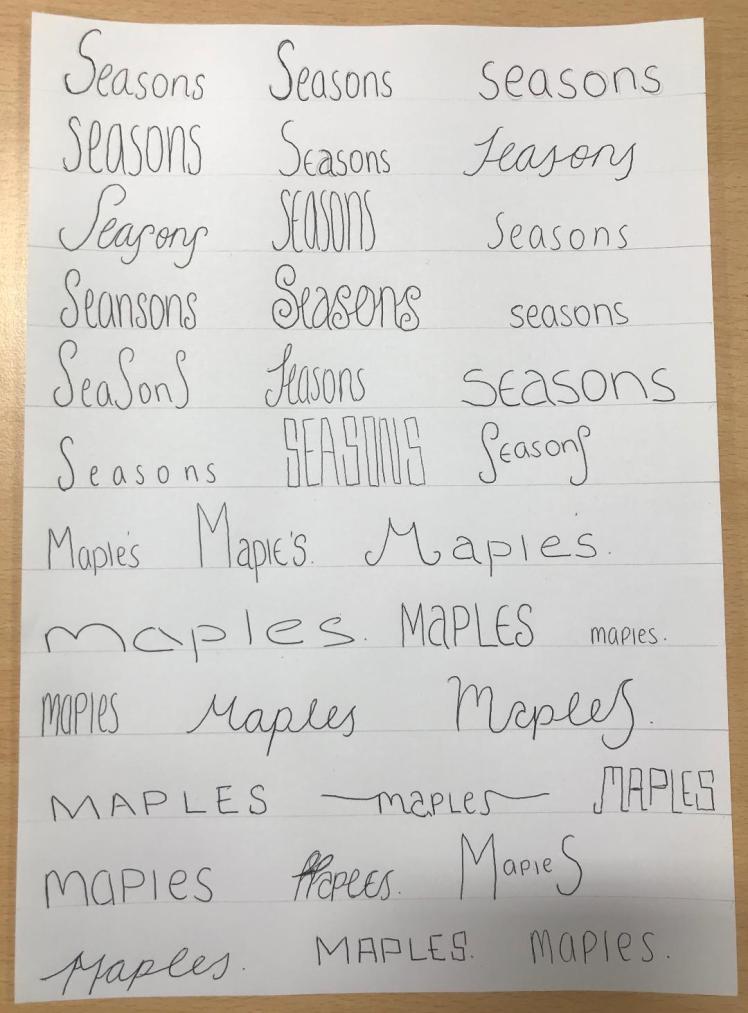 Seasons Seasons seasons
seasons Seasons Seasons
Seasons SEASONS Seasons
Seansons Seasons seasons
SeaSonS Seasons seasons
Seasons SEASONS SeasonS
Maple's Maple's. Maple's.
maples. MaPLES maples.
maples Maples MapleS.
MAPLES maples MAPLES
maples Maples. MapleS
Maples. MAPLES. maples.